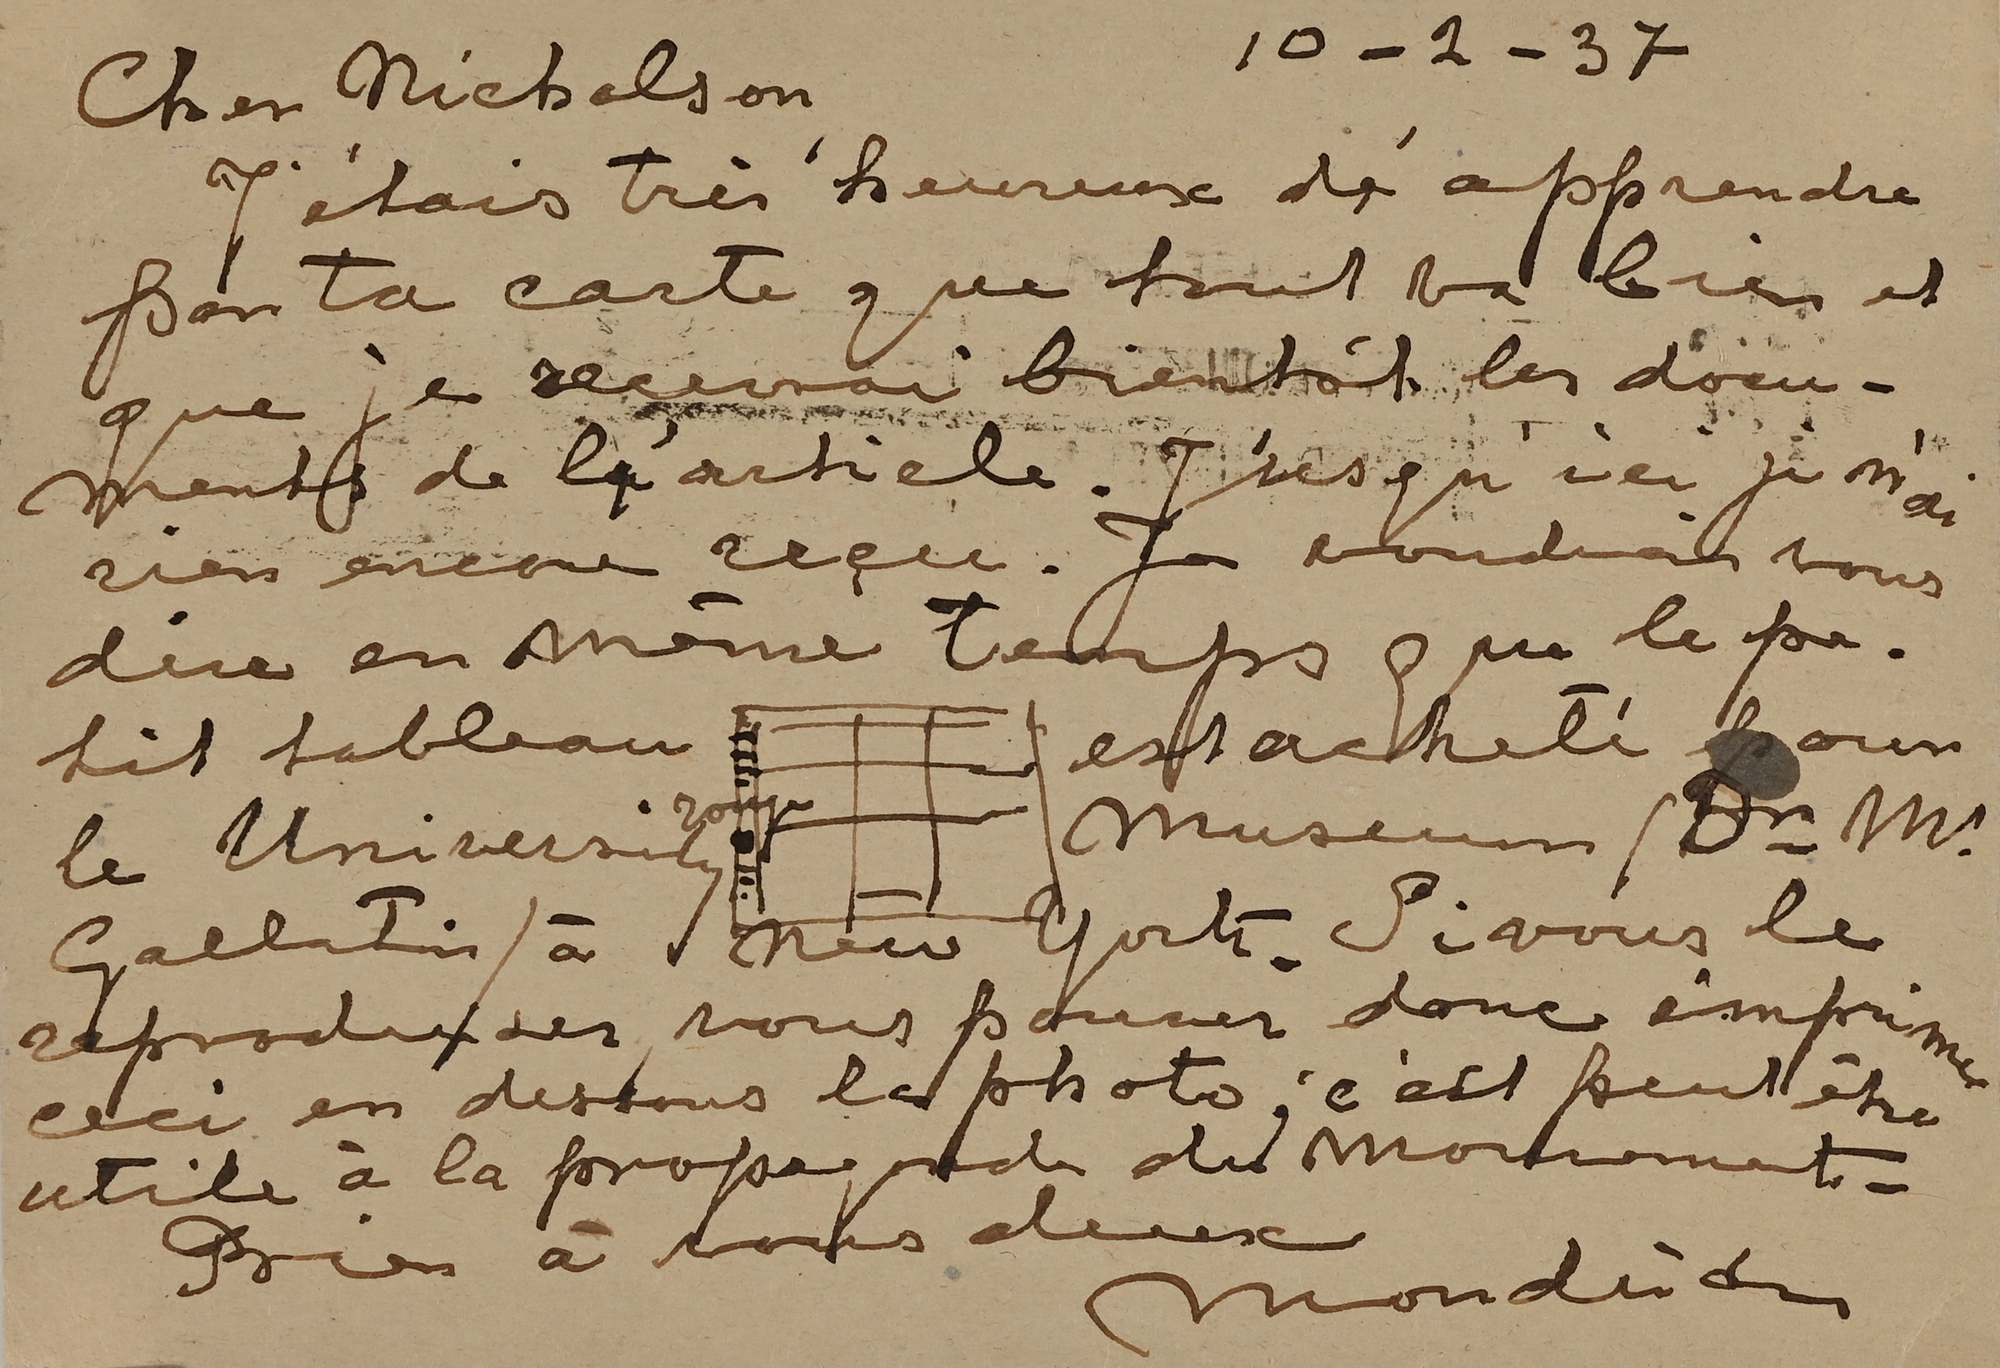 10-2-37
Cher Nicholson
J'étais très heureux d'apprendre
par ta carte que tout va bien et
que je recevrai bientôt les docu-
ments de l'article. Jusqu'ici je n'ai
rien encore reçu. Je voudrais vous
dire en même temps que le pe-
tit tableau est acheté pour
rouge
le University Museum (Dr. Mr.
Gallatin) à New York. Si vous le
reproduiser, vous pouvez donc imprimer
ceci en dessous la photo; c'est peut être
utile à la propagande du Mouvement.
Bien à vous deux
Mondrian